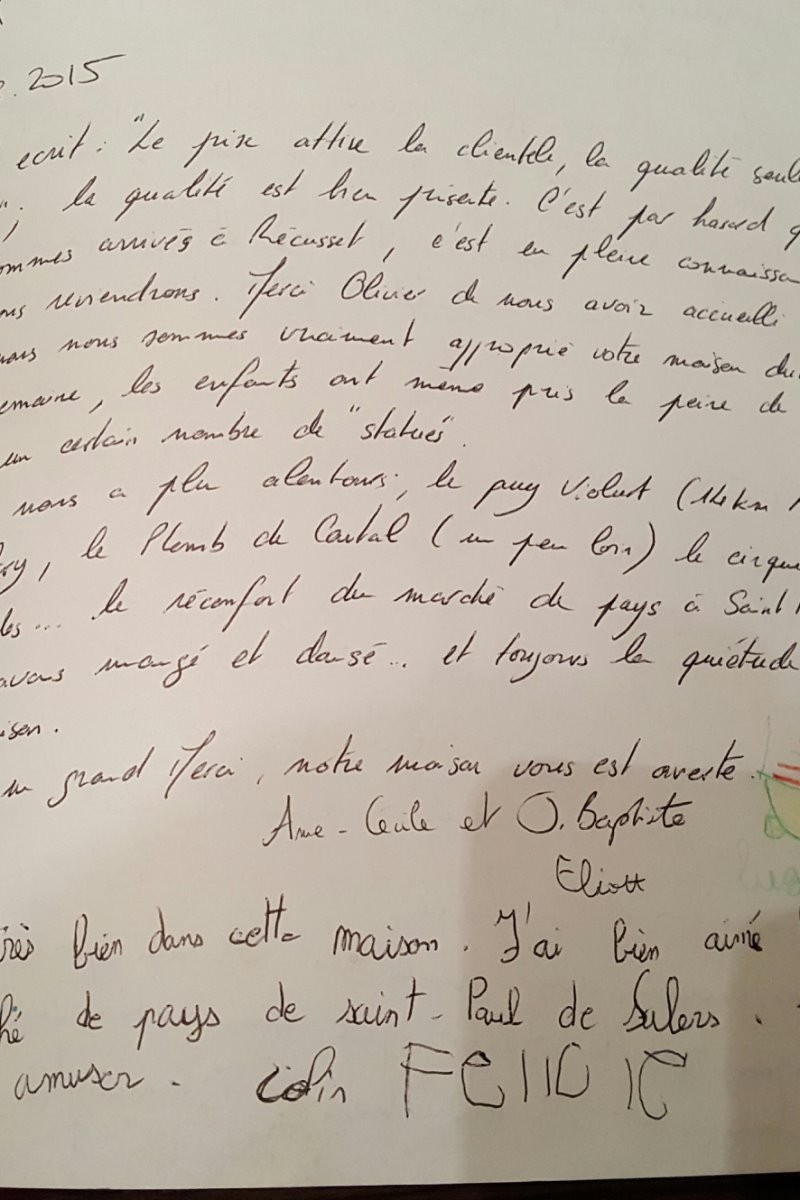 . 2015
ecrit : "Le prix attire la clientèle, la qualité seul
"; la qualité est bien présente. C'est par hasard q
ommes arrivés à Récusset, c'est en pleine connaissa
ous reviendrons. Merci Olivier de nous avoir accueilli
nous nous sommes vraiment approprié votre maison du
emaine, les enfants ont même pris la peine de
un certain nombre de "statues".
nous a plu alentours; le puy Violent (14km
, le Plomb du Cantal (un peu loin) le cirque
les... le réconfort du marché de pays à Saint
avons mangé et dansé... et toujours la quiétude
ison.
un grand Merci, notre maison vous est ouverte.
Anne-Cécile et O. Baptiste
Eliott
rès bien dans cette maison. J'ai bien aimé
hé de pays de saint-Paul de Salers.
amuser. colin FELICIE